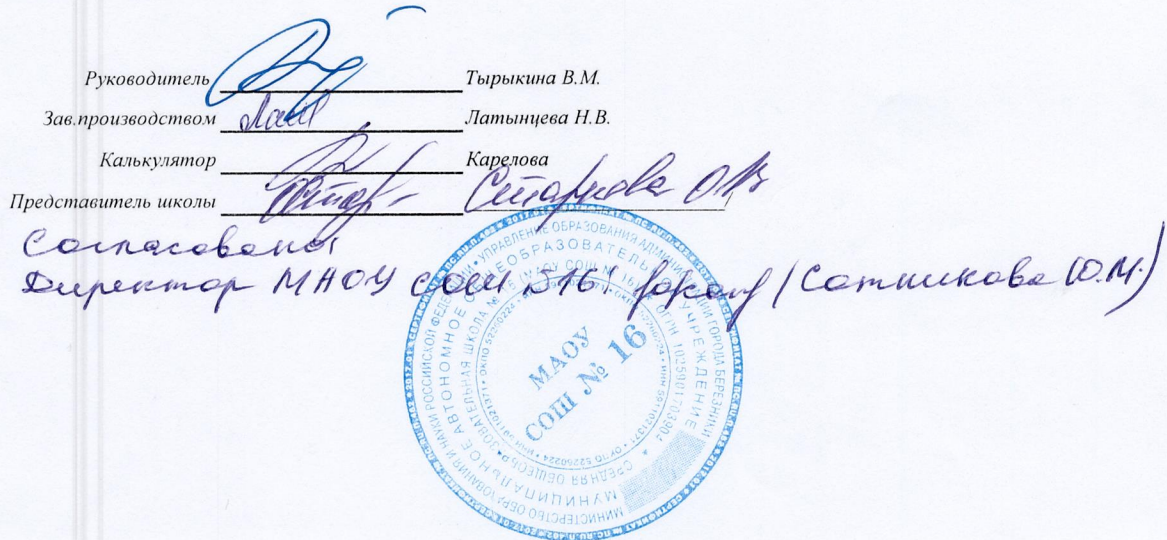 Руководитель Тырыкина В.М.
Зав.производством Лат Латынцева Н.В.
Калькулятор Карелова
Представитель школы
Согласовано:
Директор МАОУ СОШ №16 / Сотникова Ю.М.)
МИНИСТЕРСТВО ОБРАЗОВАНИЯ И НАУКИ РОССИЙСКОЙ ФЕДЕРАЦИИ • УПРАВЛЕНИЕ ОБРАЗОВАНИЯ АДМИНИСТРАЦИИ ГОРОДА БЕРЕЗНИКИ
МУНИЦИПАЛЬНОЕ АВТОНОМНОЕ ОБЩЕОБРАЗОВАТЕЛЬНОЕ УЧРЕЖДЕНИЕ
СРЕДНЯЯ ОБЩЕОБРАЗОВАТЕЛЬНАЯ ШКОЛА № 16
МАОУ
СОШ № 16